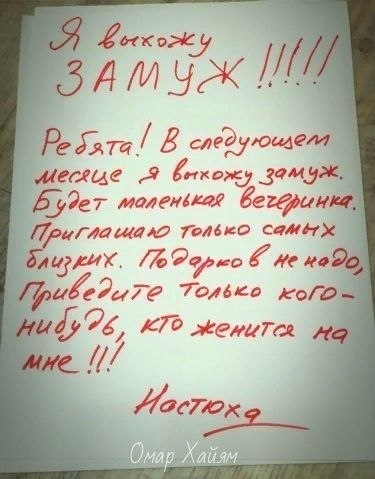 Я выхожу
ЗАМУЖ !!!!!
Ребята! В следующем
месяце я выхожу замуж.
Будет маленькая вечеринка.
Приглашаю только самых
близких. Подарков не надо,
Приведите только кого-
нибудь, кто женится на
мне !!!
Настюха
Омар Хайям